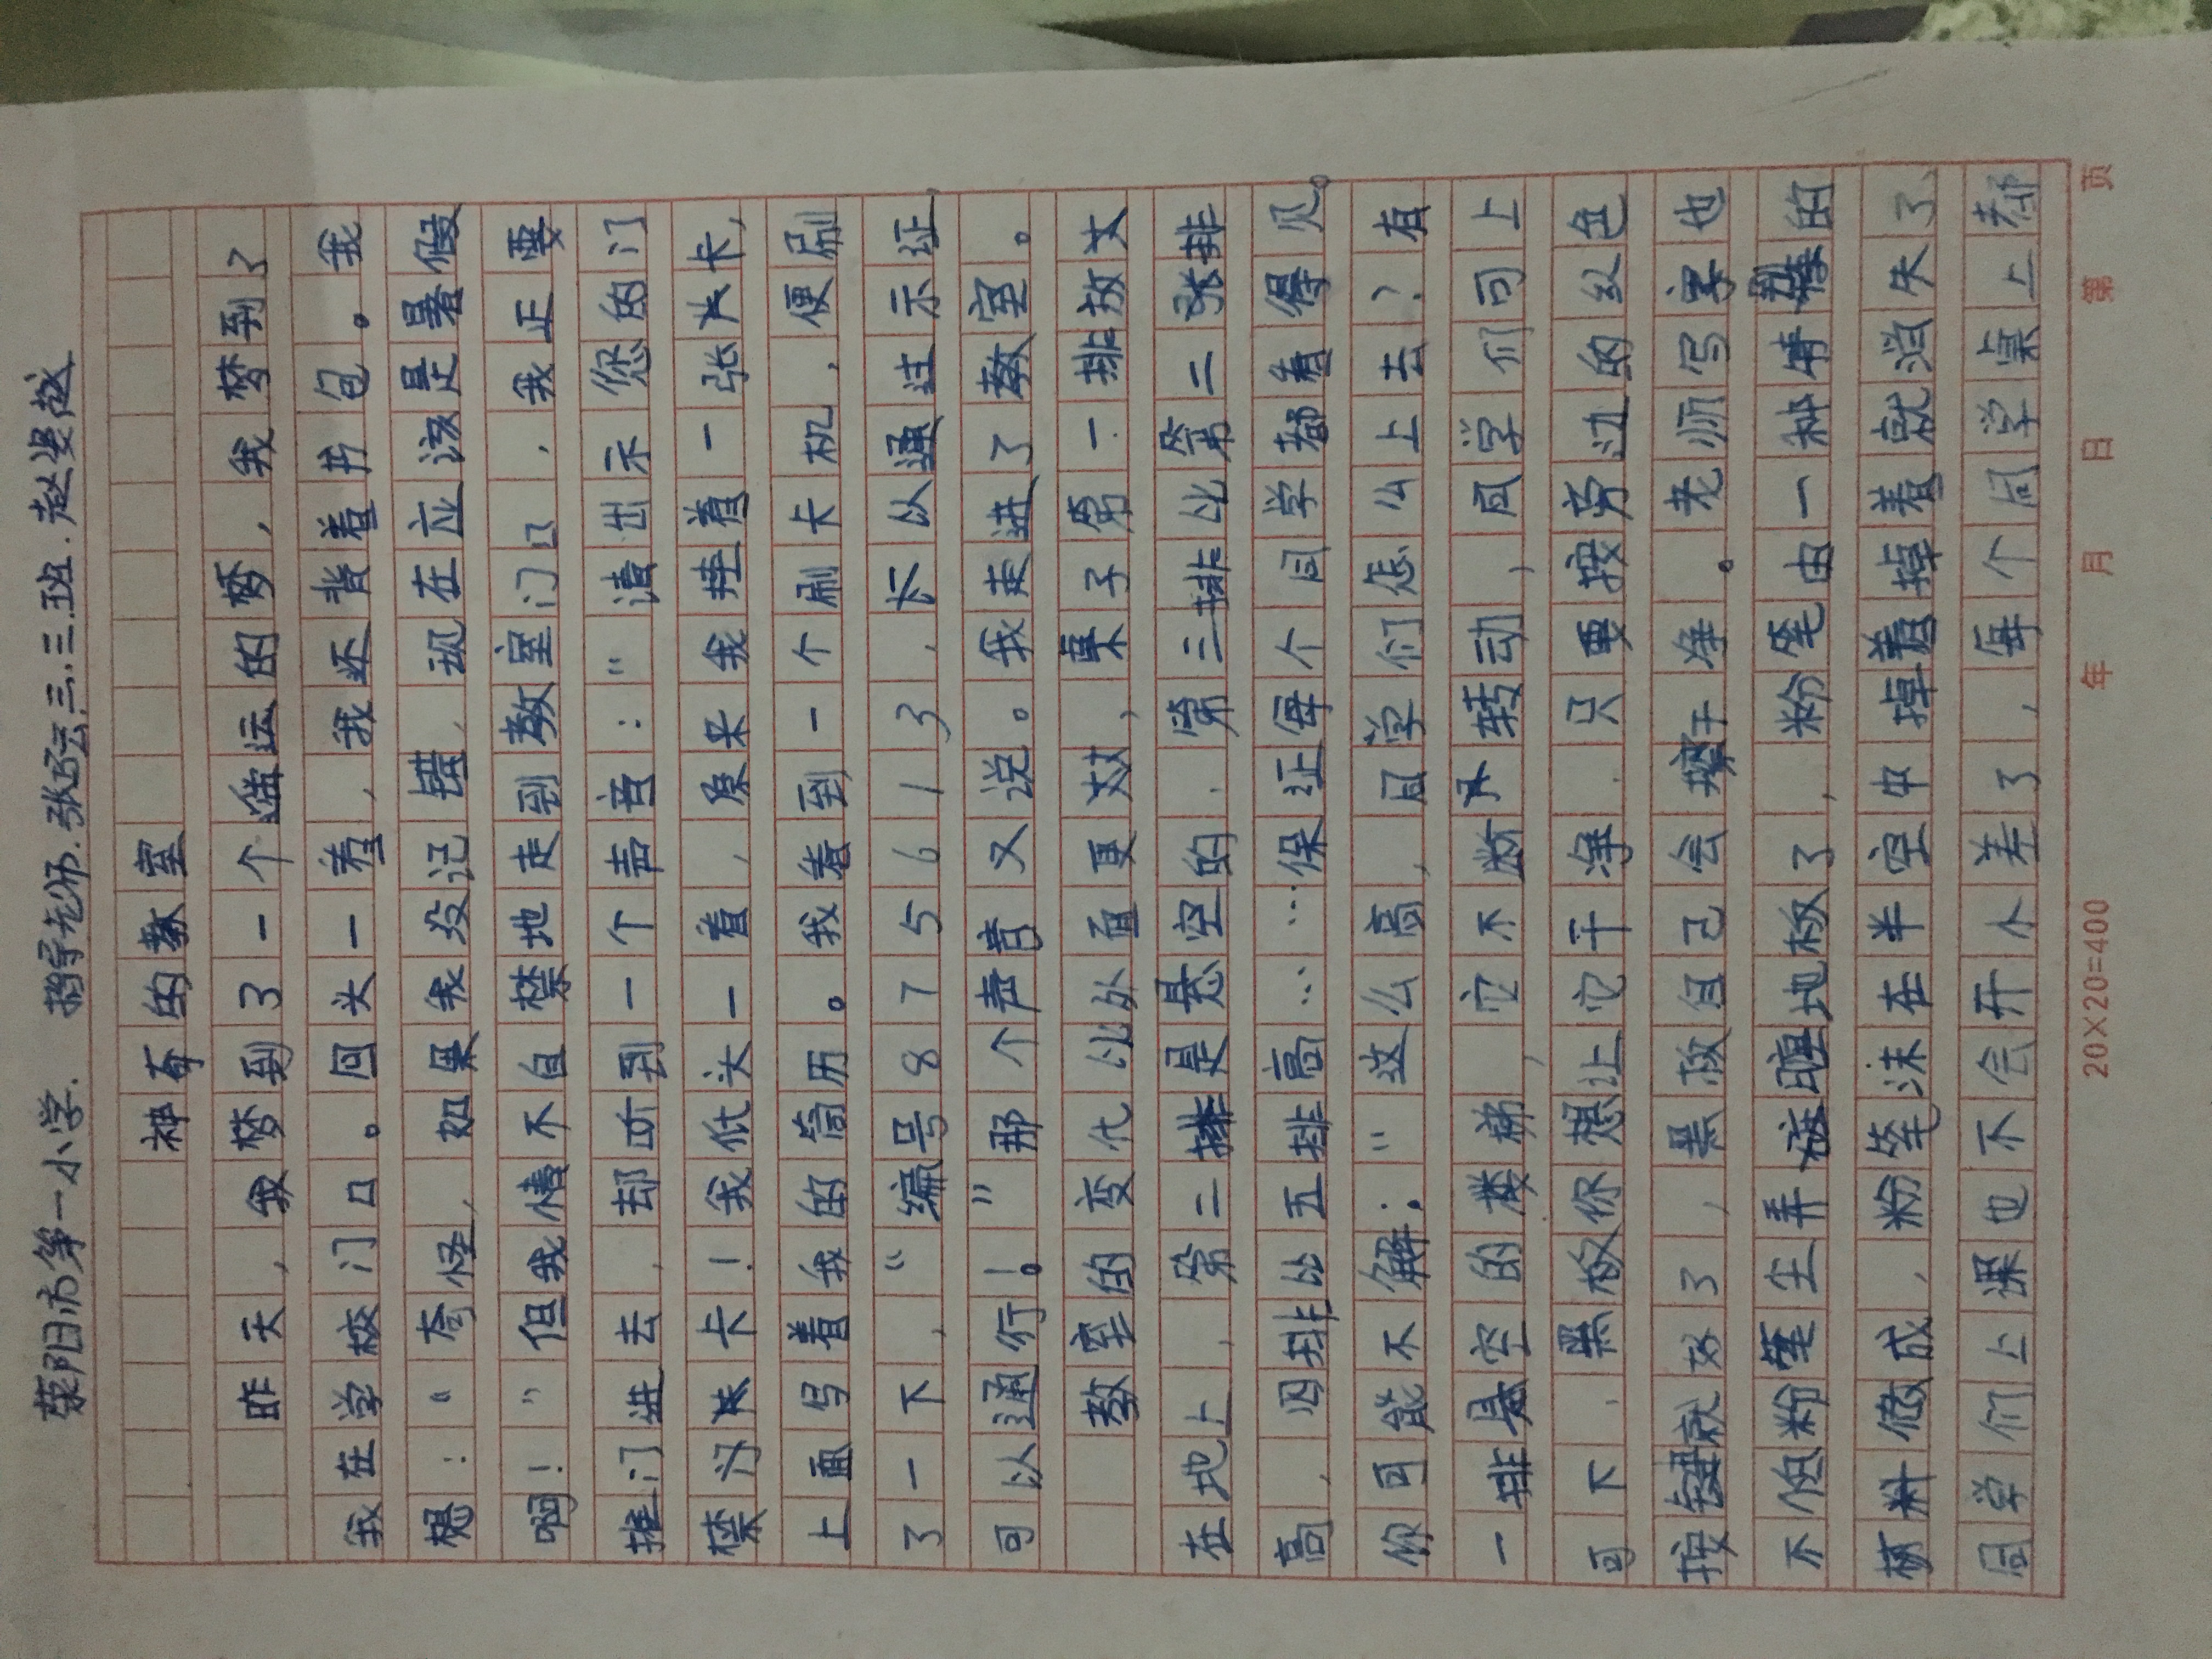 荥阳市第一小学. 指导老师.张弘三.三.三班.赵晏越
神奇的教室
昨天，我梦到了一个遥远的梦，我梦到了
我在学校门口。回头一看，我还背着书包。我
想：“奇怪，如果我没记错，现在应该是暑假
啊！”但我情不自禁地走到教室门口，我正要
推门进去，却听到一个声音：“请出示您的门
禁力卡卡！我低头一看，原来我挂着一张大卡，
上面写着我的简历。我看到一个刷卡机，便刷
了一下，“编号875613，不以通过示证，
可以通行！”那个声音又说。我走进了教室。
教室的变化比外面更大，桌子第一排放
在地上，第二排是悬空的，第三排比第二张排
高，四排比五排高……保证每个同学都看得见。
你可能不解：“这么高，同学们怎么上去？有
一排悬空的楼梯，它不断转动，同学们可上
可下，黑板你想让它干净，只要按旁边的红色
按键就好了，黑板自己会擦干净。老师写字也
不使粉笔尘弄脏地板了，粉笔由一种特殊的
材料做成，粉笔沫在半空中掉着掉着就消失了，
同学们上课也不会开小差了，每个同学桌上都
20×20=400 年 月 日 第 页